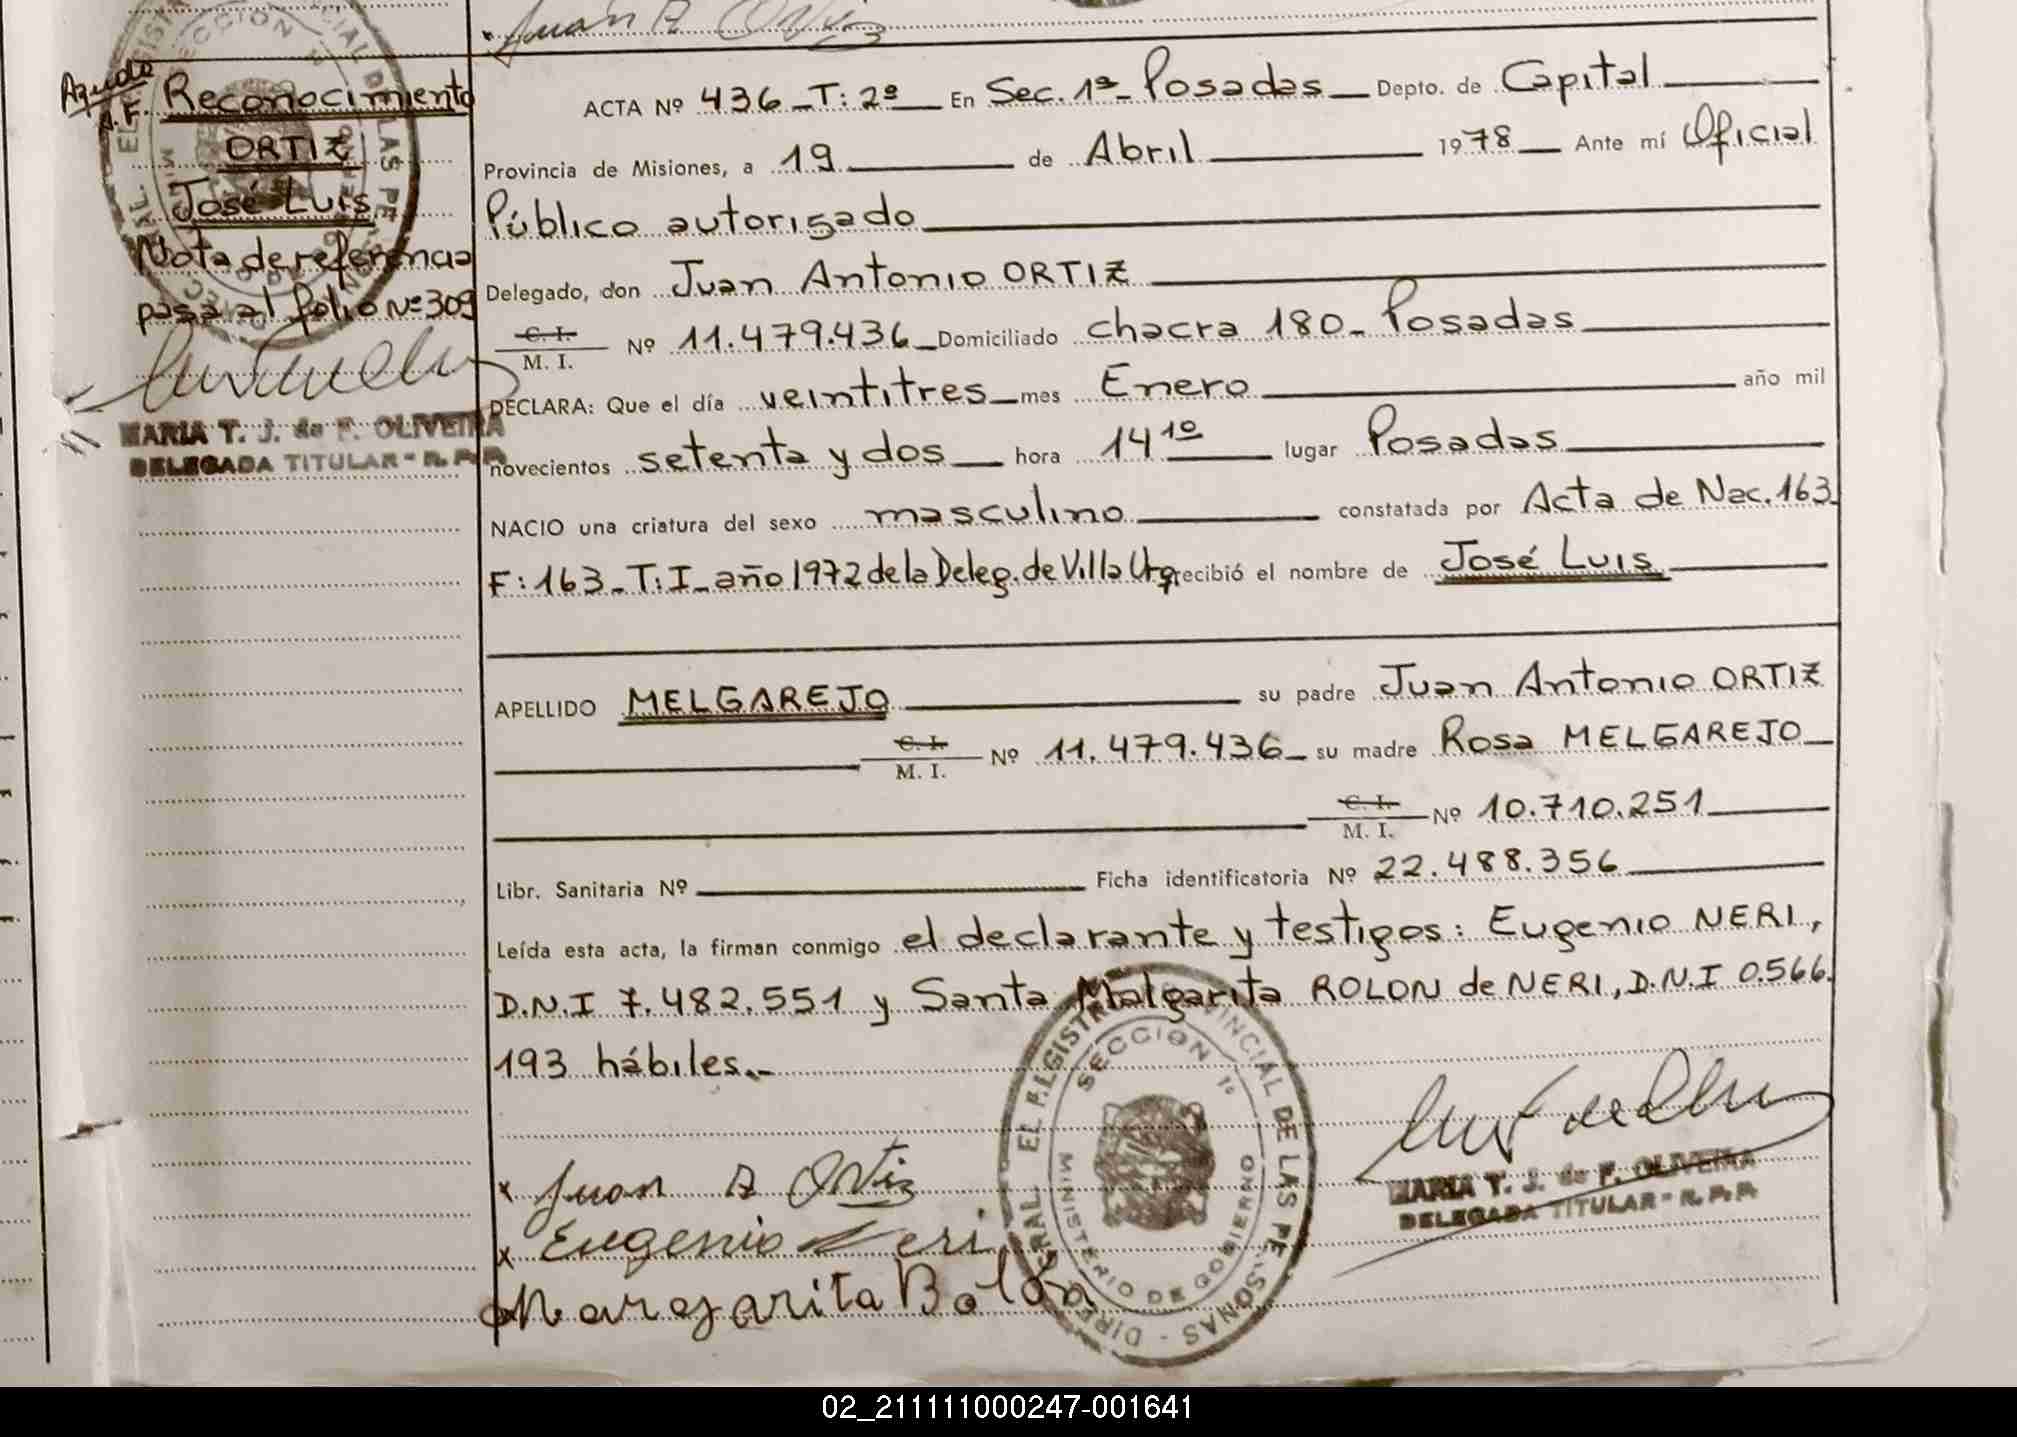 Juan A Ortiz
Reconocimiento
ORTIZ
José Luis
Nota de referencia
pasa al folio Nº 309
MARIA T. J. de F. OLIVEIRA
DELEGADA TITULAR - R. P. P.
ACTA Nº 436 - T: 2º En Sec. 1ª - Posadas Depto. de Capital
Provincia de Misiones, a 19 de Abril 1978 Ante mí Oficial
Público autorisado
Delegado, don Juan Antonio ORTIZ
C. I.
M. I. Nº 11.479.436 Domiciliado chacra 180 - Posadas
DECLARA: Que el día veintitres mes Enero año mil
novecientos setenta y dos hora 14 10 lugar Posadas
NACIO una criatura del sexo masculino constatada por Acta de Nac. 163
F: 163 - T: I - año 1972 de la Deleg. de Villa Urq. recibió el nombre de José Luis
APELLIDO MELGAREJO su padre Juan Antonio ORTIZ
C. I.
M. I. Nº 11.479.436 su madre Rosa MELGAREJO
C. I.
M. I. Nº 10.710.251
Libr. Sanitaria Nº Ficha identificatoria Nº 22.488.356
Leída esta acta, la firman conmigo el declarante y testigos: Eugenio NERI,
D.N.I 7.482.551 y Santa Malgarita ROLON de NERI, D.N.I 0.566.
193 hábiles.-
Juan A Ortiz
Eugenio Neri
Margarita Bolon
DIRECCION GENERAL DEL REGISTRO PROVINCIAL DE LAS PERSONAS
SECCION 1º
MINISTERIO DE GOBIERNO
MARIA T. J. de F. OLIVEIRA
DELEGADA TITULAR - R. P. P.
02_211111000247-001641